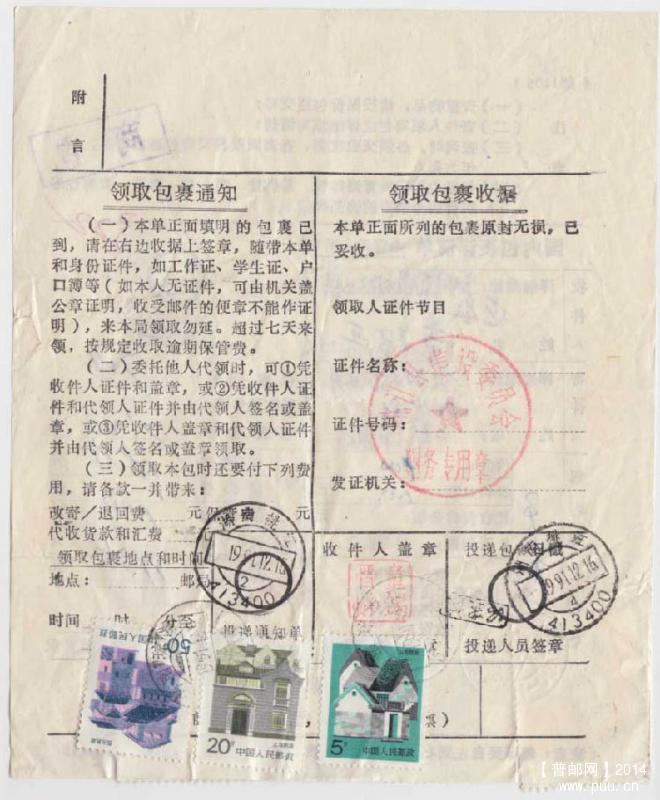 附
言
领取包裹通知
（一）本单正面填明的包裹已
到，请在右边收据上签章，随带本单
和身份证件，如工作证、学生证、户
口簿等（如本人无证件，可由机关盖
公章证明，收受邮件的便章不能作证
明），来本局领取勿延。超过七天来
领，按规定收取逾期保管费。
（二）委托他人代领时，可①凭
收件人证件和盖章，或②凭收件人证
件和代领人证件并由代领人签名或盖
章，或③凭收件人盖章和代领人证件
并由代领人签名或盖章领取。
（三）领取本包时还要付下列费
用，请备款一并带来：
改寄／退回费 元 元
代收货款和汇费
领取包裹地点和时间
地点： 邮局
时间 时 分至
投递通知单
领取包裹收据
本单正面所列的包裹原封无损，已
妥收。
领取人证件节目
证件名称：
证件号码：
发证机关：
设委员会
财务专用章
收件人盖章
投递包裹日戳
投递人员签章
1991.12.16
2
413400
1991.12.16
4
413400
50分
中国人民邮政
20分
中国人民邮政
5分
中国人民邮政
【普邮网】2014
www.puu.cn